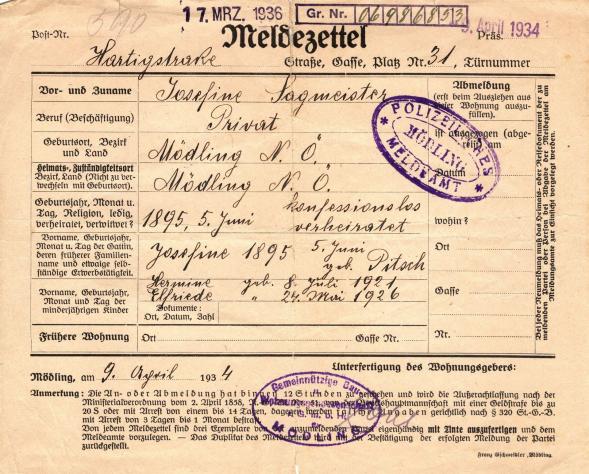 590
17. MRZ. 1936
Gr. Nr. 06986853
9. April 1934
Post-Nr.
Meldezettel
Präs.
Hartigstraße Straße, Gasse, Platz Nr. 31, Türnummer
Vor- und Zuname
Josefine Sagmeister
Beruf (Beschäftigung)
Privat
Geburtsort, Bezirk und Land
Mödling N. Ö.
Heimats-Zuständigkeitsort
Bezirk, Land (Nicht zu verwechseln mit Geburtsort).
Mödling N. Ö.
Geburtsjahr, Monat u. Tag, Religion, ledig, verheiratet, verwitwet?
1895, 5. Juni konfessionslos verheiratet
Vorname, Geburtsjahr, Monat u. Tag der Gattin, deren früherer Familienname und etwaige selbständige Erwerbstätigkeit.
Josefine 1895 5. Juni geb. Pitsch
Vorname, Geburtsjahr, Monat und Tag der minderjährigen Kinder
Hermine geb. 8. Juli 1921
Elfriede " 24. Mai 1926
Dokumente:
Ort, Datum, Zahl
Frühere Wohnung
Ort
Gasse Nr.
Abmeldung
(erst beim Ausziehen aus der Wohnung auszufüllen).
ist ausgezogen (abgereist) am
Datum
wohin?
Ort
Gasse
Nr.
POLIZEILICHES
MÖDLING
MELDEAMT
Bei jeder Neumeldung muß das Heimats- oder Reisedokument der zu meldenden Partei oder Person bei Abgabe der Meldezettel am Meldungsamte zur Einsicht vorgelegt werden.
Mödling, am 9. April 1934
Unterfertigung des Wohnungsgebers:
Gemeinnützige Bau-
MÖDLING
Anmerkung: Die An- oder Abmeldung hat binnen 12 Stunden zu geschehen und wird die Außerachtlassung nach der
Ministerialverordnung vom 2. April 1858, mit einer Geldstrafe bis zu
20 S oder mit Arrest von einem bis 14 Tagen, gerichtlich nach § 320 St.-G.-B.
mit Arrest von 3 Tagen bis 1 Monat bestraft
Von jedem Meldezettel sind drei Exemplare von eigenhändig mit Tinte auszufertigen und dem
Meldeamte vorzulegen. — Das Duplikat des Meldezettels wird mit der Bestätigung der erfolgten Meldung der Partei
zurückgestellt.
Franz Gschweidler, Mödling.